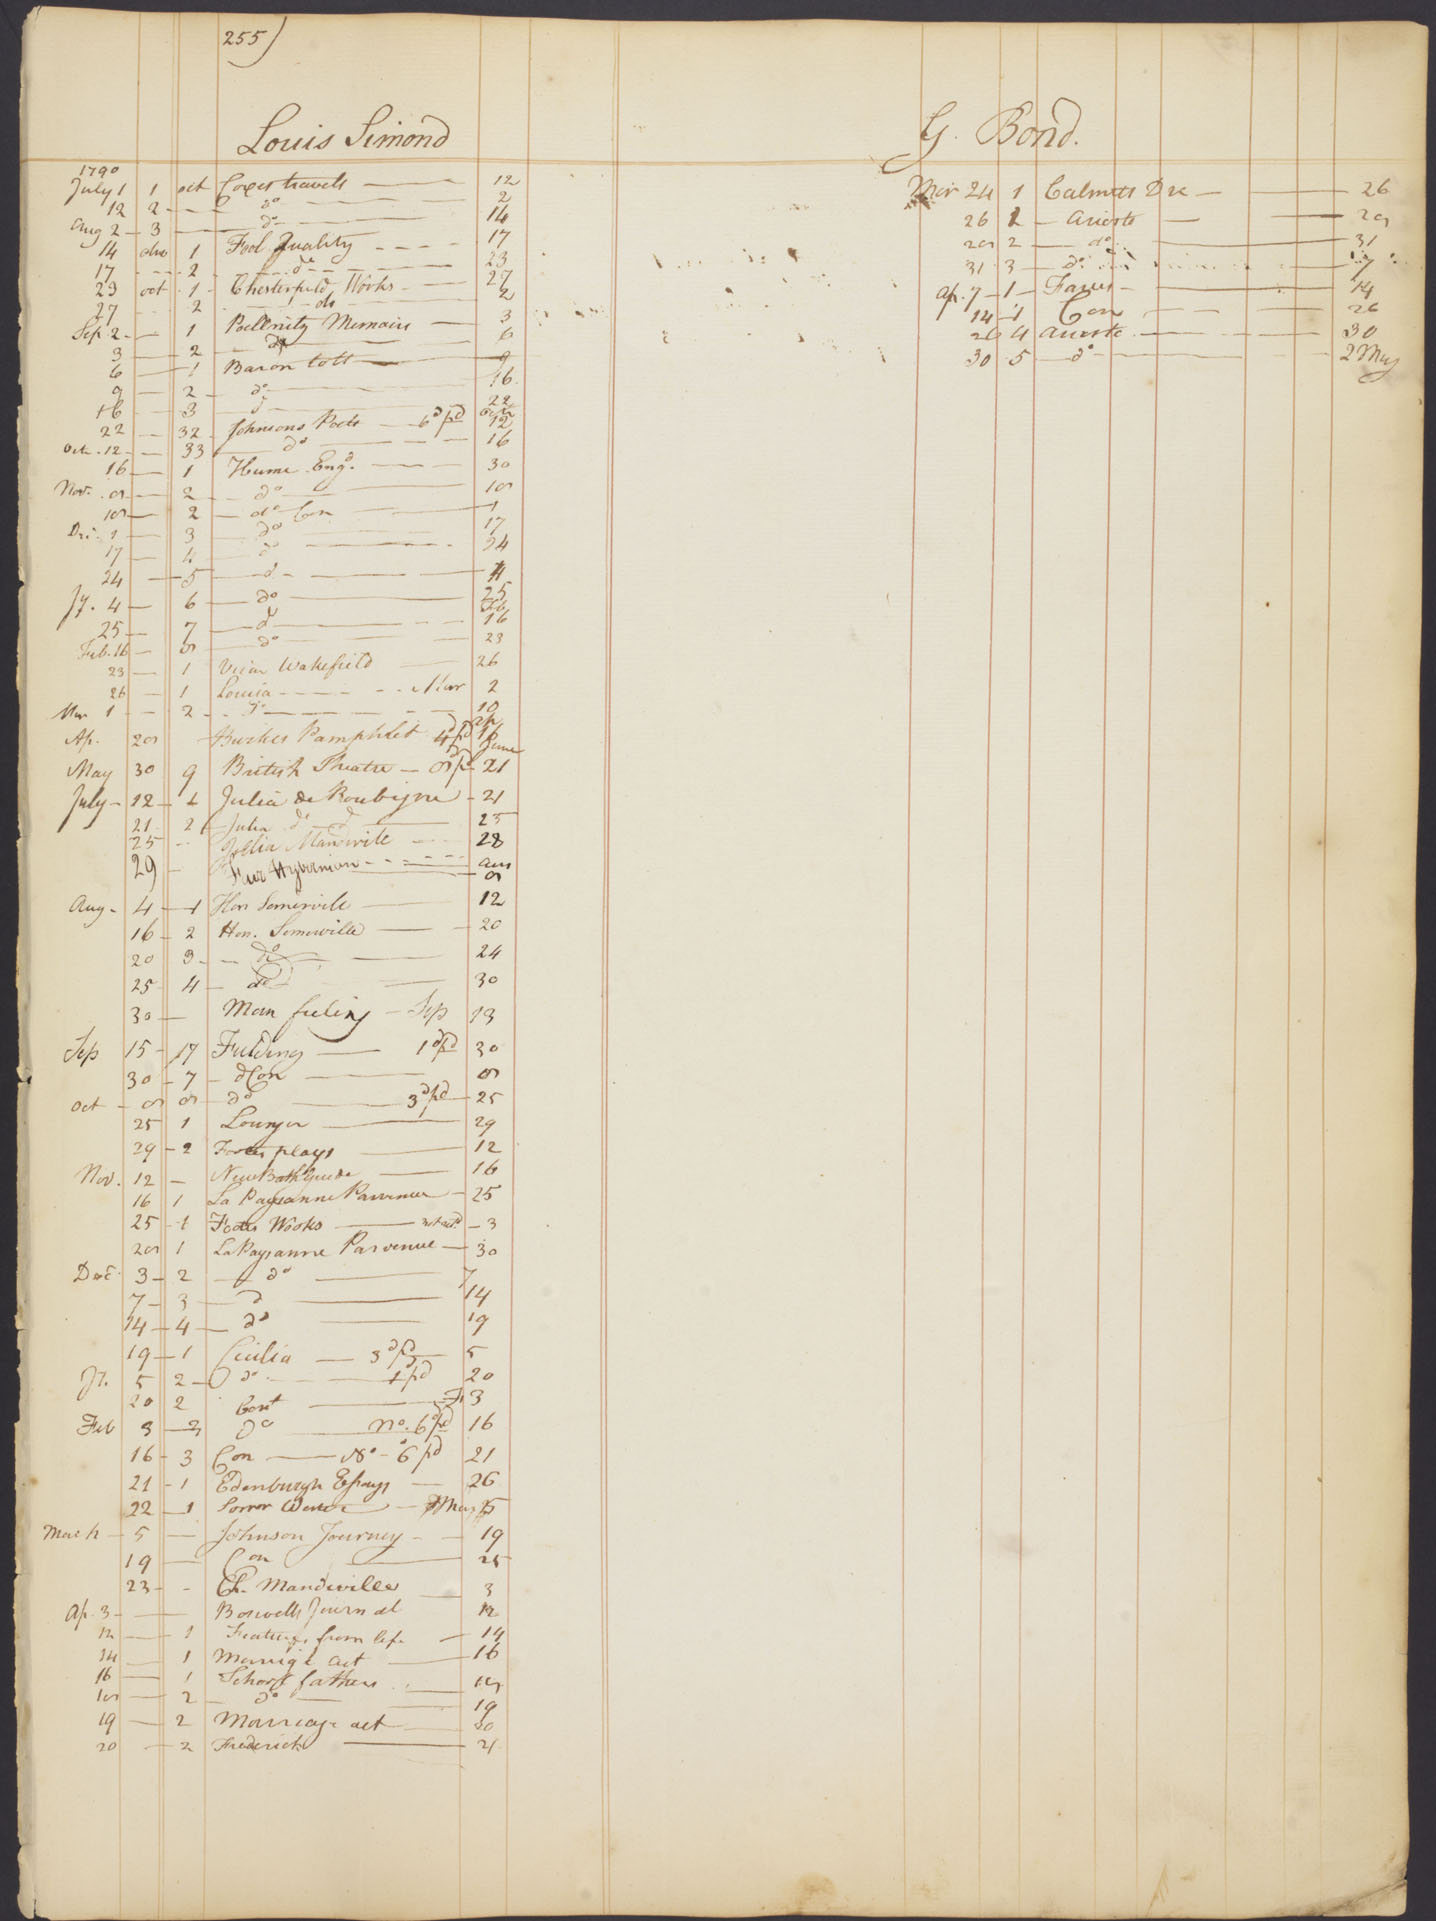 255)
Louis Simond
1790
July 1 1 oct Coxes travels 12
12 2 do 2
Aug 2 3 do 14
14 duo 1 Fool Quality 17
17 2 do 23
23 oct 1 Chesterfield Works 27
27 2 do 2
Sep 2 1 Poellnitz Memoirs 3
3 2 do 6
6 1 Baron tott 9
9 2 do 16
16 3 do 22
22 32 Johnsons Poets 6d pd Oct 12
Oct. 12 33 do 16
16 1 Hume Engd. 30
Nov. 8 2 do 18
18 2 do Con 1
Dec. 1 3 do 17
17 4 do 24
24 5 do 4
Jy. 4 6 do 25
25 7 do Feb 16
Feb. 16 8 do 23
23 1 Vicar Wakefield 26
26 1 Louisa Mar 2
Mar 1 2 do 10
Ap. 28 Burkes Pamphlet 4d pd
May 30 9 British Theatre 8d pd June 21
July 12 1 Julia de Roubigne 21
21 2 Julia do do 25
25 Julia Mandevile 28
29 Fair Hybernian Aug 8
Aug 4 1 Hon Somervile 12
16 2 Hon. Somerville 20
20 3 do 24
25 4 do 30
30 Man feeling Sep 13
Sep 15 17 Fielding 1d pd 30
30 7 do Con 8
Oct 8 8 do 3d pd 25
25 1 Lounger 29
29 2 Footes plays 12
Nov. 12 New Bath Guide 16
16 1 La Paysanne Parvenue 25
25 1 Footes Works 3
28 1 La Paysanne Parvenue 30
Dec 3 2 do 7
7 3 do 14
14 4 do 19
19 1 Cicilia 3d pd 5
Jy. 5 2 do 1 pd 20
20 2 Cont Fe 3
Feb 3 3 do No. 6d pd 16
16 3 Con No 6d pd 21
21 1 Edenburgh Essays 26
22 1 Sorror Werter Mar 5
March 5 Johnson Journey 19
19 Con 25
23 Ch. Mandeville 3
Ap. 3 Boswells Journal 12
12 1 Features from life 14
14 1 Marrige act 16
16 1 School fathers 18
18 2 do 19
19 2 Marriage act 20
20 2 Frederick 21
G. Bond.
Mar 24 1 Calmetts Dic 26
26 1 Ariosto 28
28 2 do 31
31 3 do 7
Ap. 7 1 14
14 1 Con 26
26 4 Ariosto 30
30 5 do 2 May